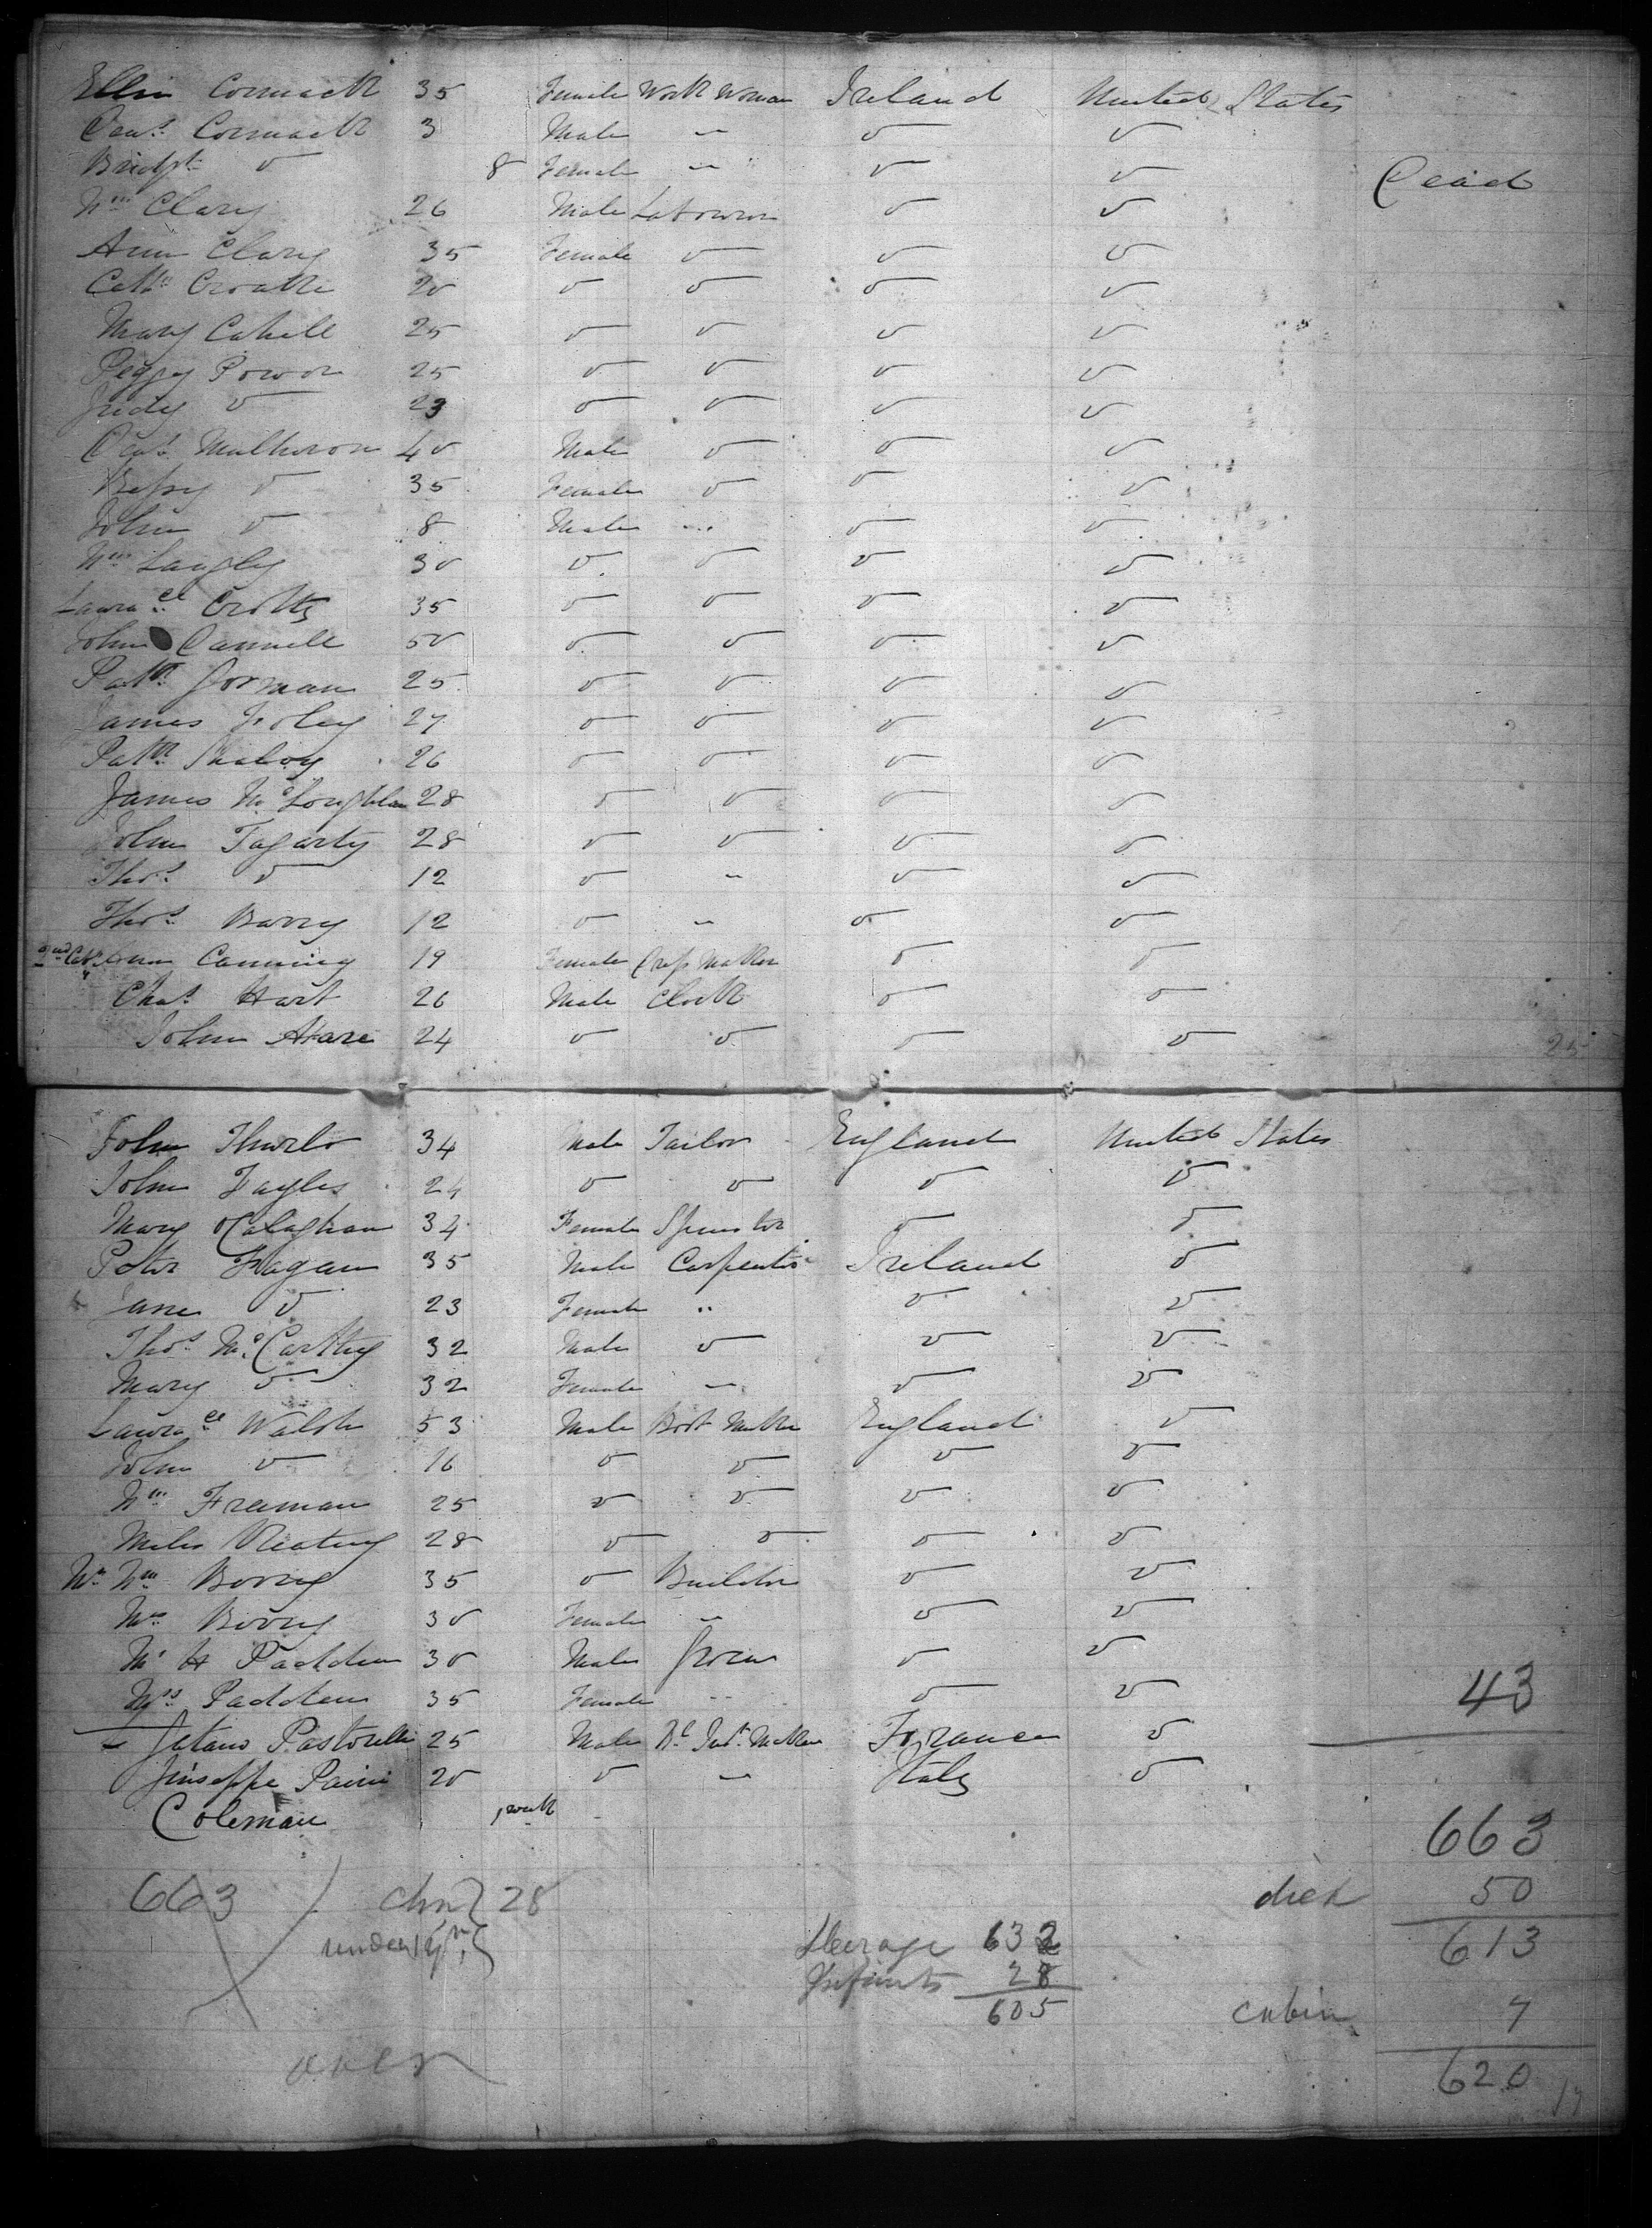 Ellin Cormack 35 Female Work Woman Ireland United States
Danl. Cormack 3 Male " " "
Bridgt. " 8 Female " " " Dead
Wm Clary 26 Male Labourer " "
Ann Clary 35 Female " " "
Cath. 20 " " " "
Mary Cahill 25 " " " "
Peggy Power 25 " " " "
Judy " 23 " " " "
Mulheron 40 Male " " "
Betsy " 35 Female " " "
John " 8 Male " " "
Wm Langley 30 " " " "
Laurace Crotty 35 " " " "
John Dannell 50 " " " "
Patk. Gorman 25 " " " "
James Foley 27 " " " "
Patk. 26 " " " "
James McLoughlan 28 " " " "
John Fagarty 28 " " " "
Thos. " 12 " " " "
Thos. Barry 12 " " " "
2nd Cab. Ann Canning 19 Female Dress Maker " "
Chas. Hart 26 Male Clerk " "
John Hare 24 " " " " 25
John Thurlo 34 Male Tailor England United States
John Fayles 24 " " " "
Mary OCalaghan 34 Female Spinster " "
Peter Fagan 35 Male Carpenter Ireland "
Jane " 23 Female " " "
Thos. McCarthy 32 Male " " "
Mary " 32 Female " " "
Laurace Walsh 53 Male Boot Maker England "
John " 16 " " " "
Wm Freeman 25 " " " "
Miles Keating 28 " " " "
Mr. Wm. Berry 35 " Builder " "
Mrs. Berry 30 Female " " "
Mr H Padden 30 Male Grocer " "
Mrs. Padden 35 Female " " " 43
Gatano Pastorelli 25 Male Maker France "
Giuseppe Paini 20 " " Italy "
Coleman 1 week
663
663 chn 28 died 50
under 1 yr Steerage 632 613
Infants 28
605 cabin 7
over 620